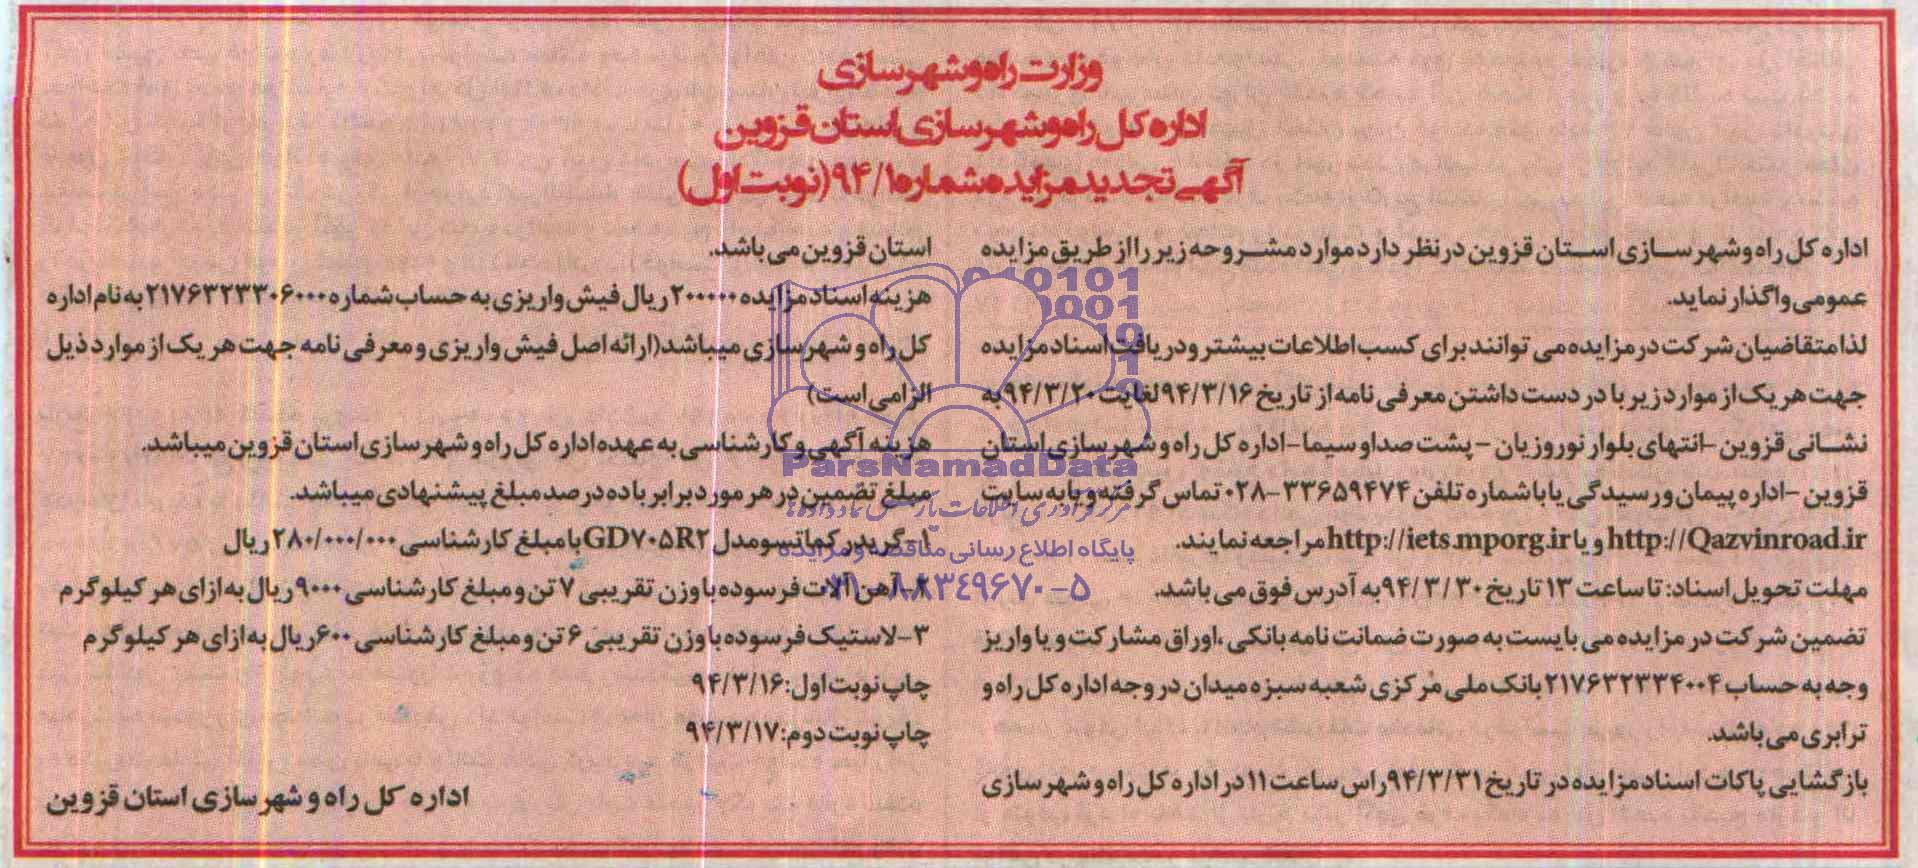 وزارت راه و شهرسازی
اداره کل راه و شهرسازی استان قزوین
آگهی تجدید مزایده شماره ۹۴/۱ (نوبت اول)
اداره کل راه و شهرسازی استان قزوین در نظر دارد موارد مشروحه زیر را از طریق مزایده
عمومی واگذار نماید.
لذا متقاضیان شرکت در مزایده می توانند برای کسب اطلاعات بیشتر و دریافت اسناد مزایده
جهت هر یک از موارد زیر با در دست داشتن معرفی نامه از تاریخ ۹۴/۳/۱۶ لغایت ۹۴/۳/۲۰ به
نشانی قزوین -انتهای بلوار نوروزیان - پشت صدا و سیما -اداره کل راه و شهرسازی استان
قزوین -اداره پیمان و رسیدگی یا با شماره تلفن ۳۳۶۵۹۴۷۴-۰۲۸ تماس گرفته و یا به سایت
http://Qazvinroad.ir و یا http://iets.mporg.ir مراجعه نمایند.
مهلت تحویل اسناد: تا ساعت ۱۳ تاریخ ۹۴/۳/۳۰ به آدرس فوق می باشد.
تضمین شرکت در مزایده می بایست به صورت ضمانت نامه بانکی، اوراق مشارکت و یا واریز
وجه به حساب ۲۱۷۶۳۲۳۳۴۰۰۴ بانک ملی مرکزی شعبه سبزه میدان در وجه اداره کل راه و
ترابری می باشد.
بازگشایی پاکات اسناد مزایده در تاریخ ۹۴/۳/۳۱ راس ساعت ۱۱ در اداره کل راه و شهرسازی
استان قزوین می باشد.
هزینه اسناد مزایده ۲۰۰۰۰۰ ریال فیش واریزی به حساب شماره ۲۱۷۶۳۲۳۳۰۶۰۰۰ به نام اداره
کل راه و شهرسازی میباشد (ارائه اصل فیش واریزی و معرفی نامه جهت هر یک از موارد ذیل
الزامی است)
هزینه آگهی و کارشناسی به عهده اداره کل راه و شهرسازی استان قزوین میباشد.
مبلغ تضمین در هر مورد برابر با ده درصد مبلغ پیشنهادی میباشد.
۱-گریدر کماتسو مدل GD۷۰۵R۲ با مبلغ کارشناسی ۲۸۰/۰۰۰/۰۰۰ ریال
۲-آهن آلات فرسوده با وزن تقریبی ۷ تن و مبلغ کارشناسی ۹۰۰۰ ریال به ازای هر کیلوگرم
۳-لاستیک فرسوده با وزن تقریبی ۶ تن و مبلغ کارشناسی ۶۰۰ ریال به ازای هر کیلوگرم
چاپ نوبت اول: ۹۴/۳/۱۶
چاپ نوبت دوم: ۹۴/۳/۱۷
اداره کل راه و شهرسازی استان قزوین
ParsNamadData
مرکز فرآوری اطلاعات پارس نماد داده ها
پایگاه اطلاع رسانی مناقصه و مزایده
۰۲۱-۸۸۳۴۹۶۷۰-۵